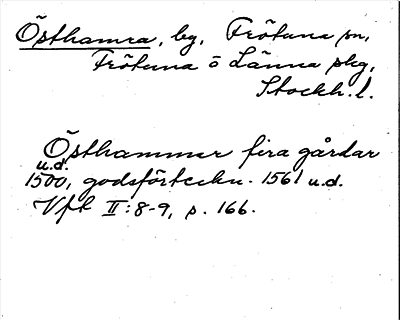 Östhamra, by, Frötuna sn,
Frötuna o Länna skg,
Stockh. l.
Östhammer fira gårdar
u.d.
1500, godsförteckn. 1561 u.d.
Vft II:8-9, s. 166.